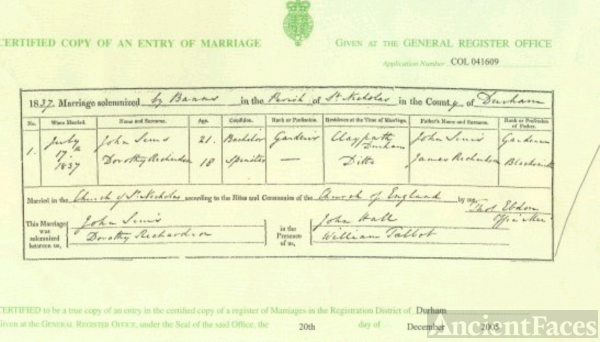 CERTIFIED COPY OF AN ENTRY OF MARRIAGE
GIVEN AT THE GENERAL REGISTER OFFICE
Application Number COL 041609
1837. Marriage solemnized by Banns in the Parish of St Nicholas in the County of Durham
No. When Married. Name and Surname. Age. Condition. Rank or Profession. Residence at the Time of Marriage. Father's Name and Surname. Rank or Profession of Father.
1. July 17th 1837
John Simis 21. Bachelor Gardener Claypath Durham John Simis Gardener
Dorothy Richardson 18 Spinster — Ditto James Richardson Blacksmith
Married in the Church of St Nicholas according to the Rites and Ceremonies of the Church of England by me, Thos Ebdon
This Marriage was solemnized between us,
John Simis
Dorothy Richardson
in the Presence of us,
John Hall
William Talbot
CERTIFIED to be a true copy of an entry in the certified copy of a register of Marriages in the Registration District of Durham
Given at the GENERAL REGISTER OFFICE, under the Seal of the said Office, the 20th day of December 2005
AncientFaces